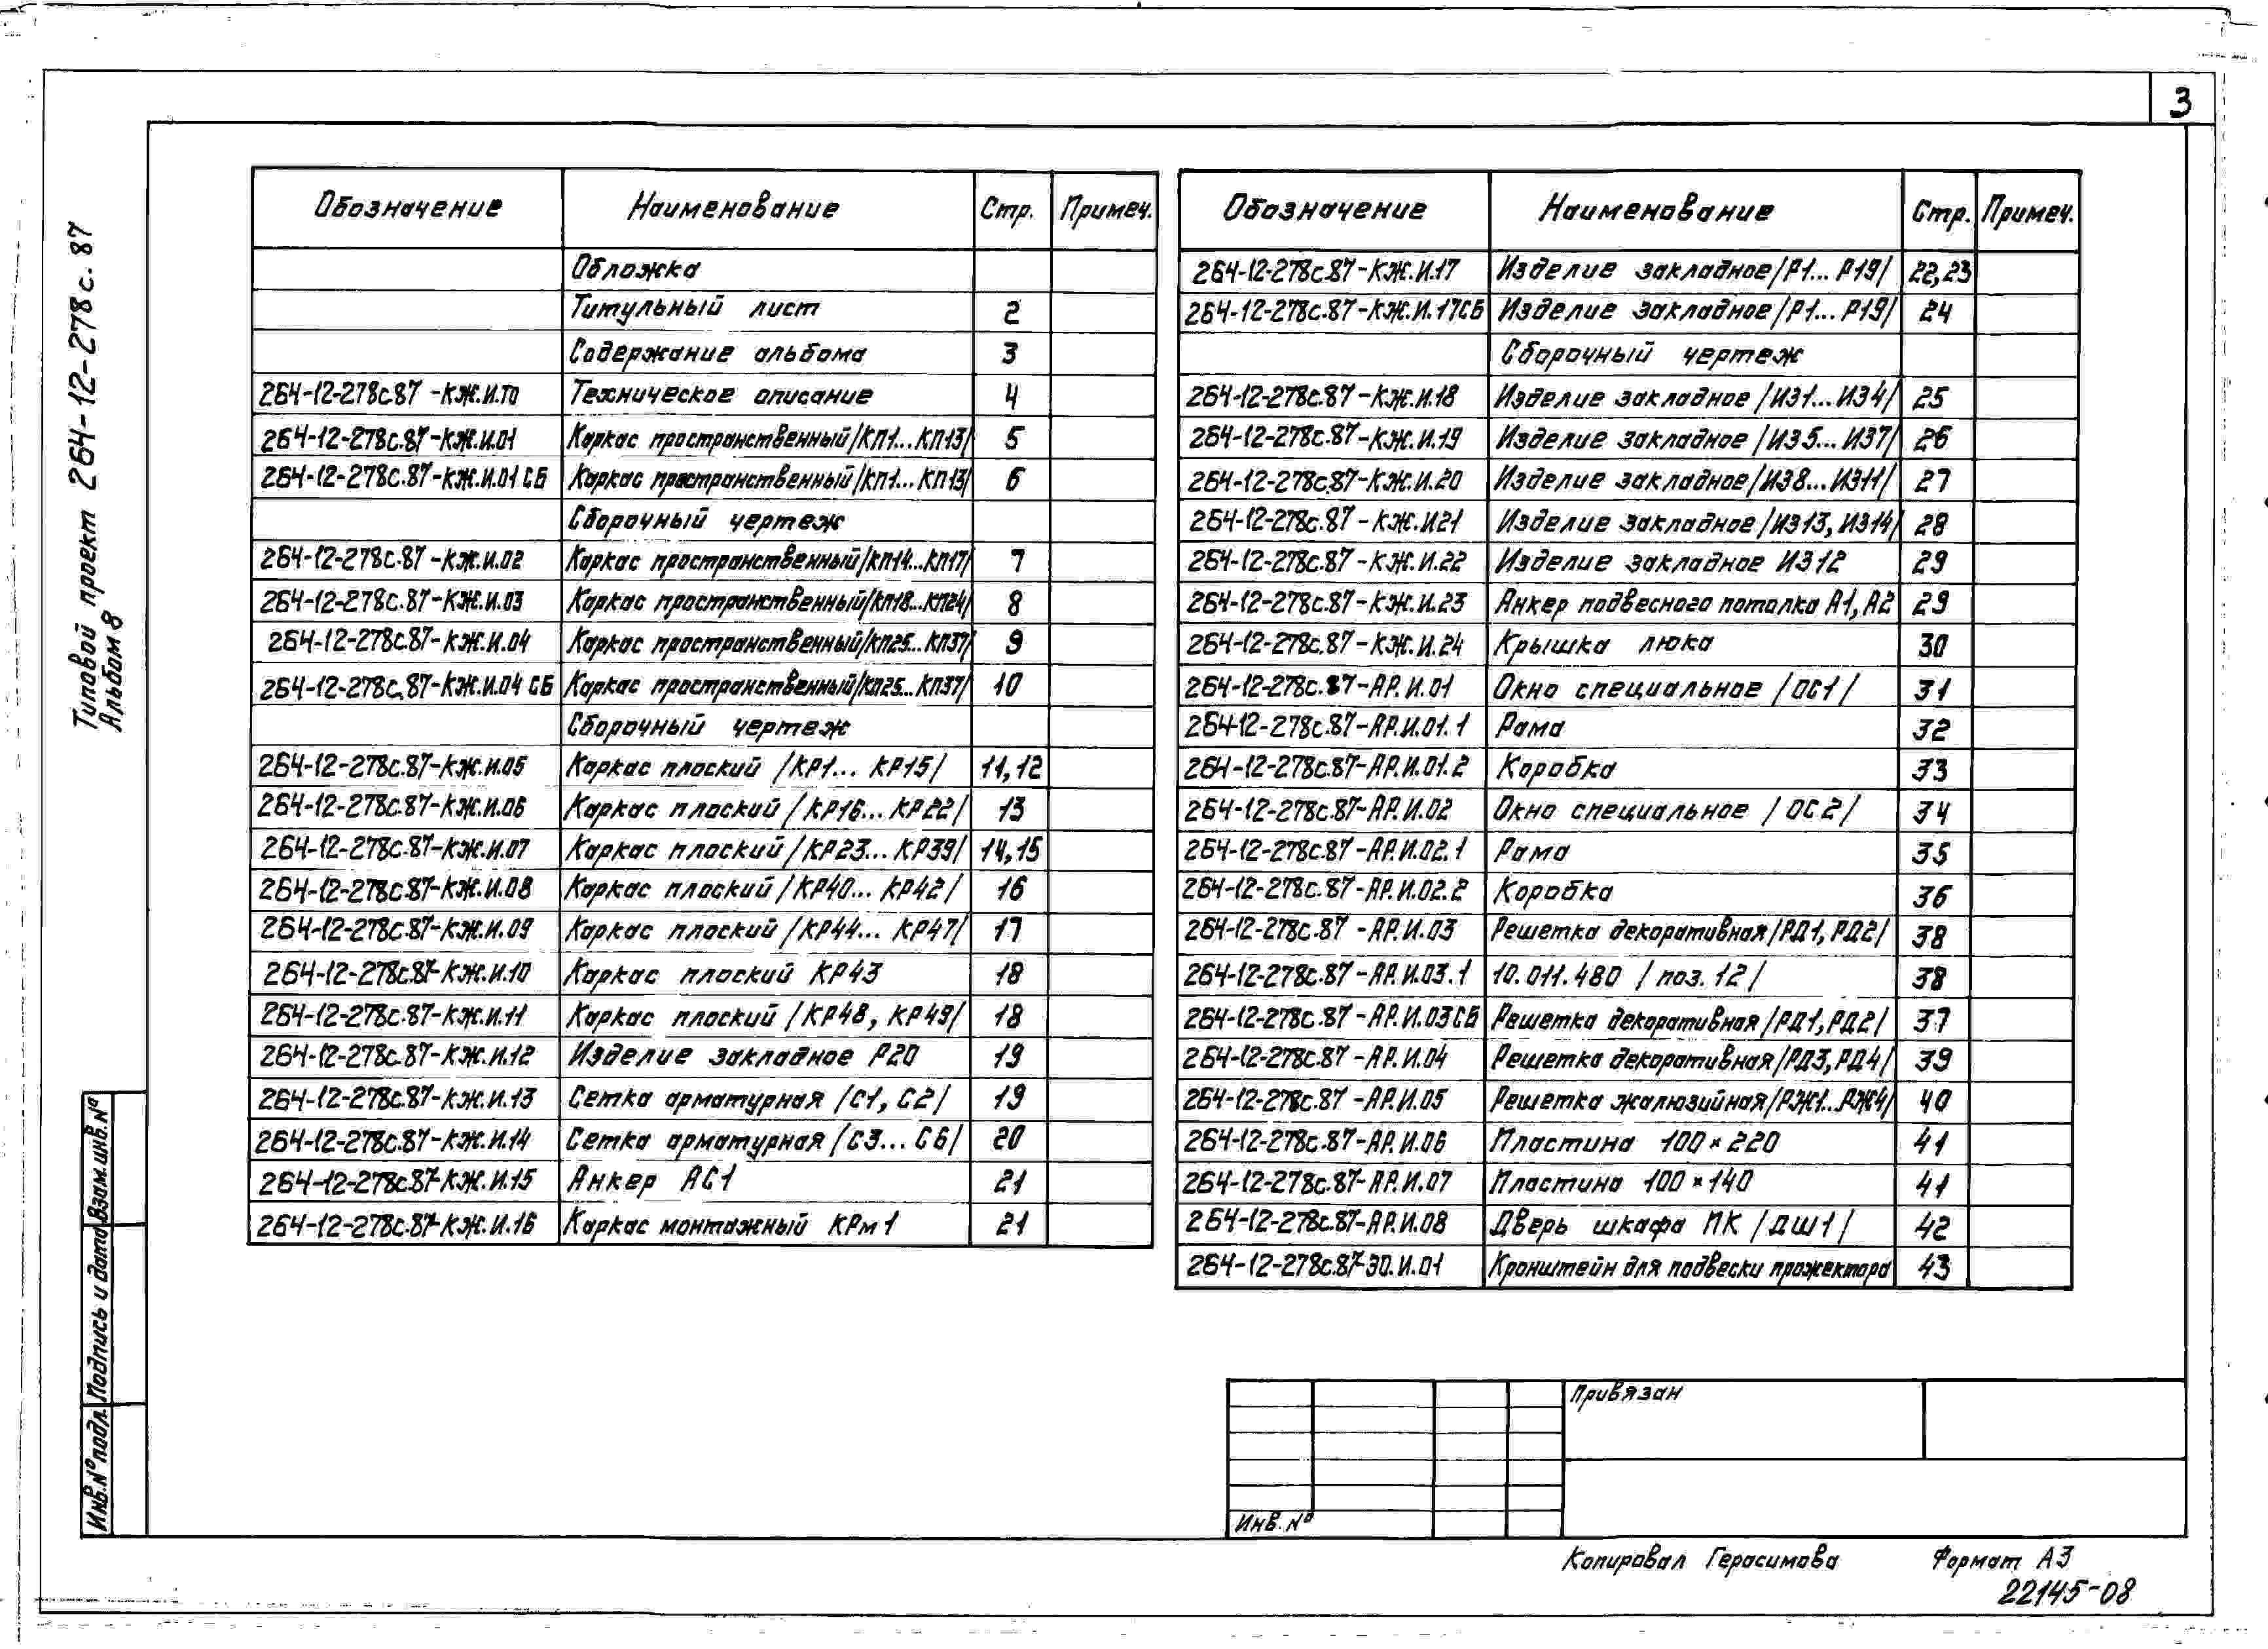 3
Типовой проект 264-12-278с.87
Альбом 8
Обозначение Наименование Стр. Примеч.
Обложка
Титульный лист 2
Содержание альбома 3
264-12-278с87 -КЖ.И.ТО Техническое описание 4
264-12-278с.87-КЖ.И.01 Каркас пространственный/КП1...КП13/ 5
264-12-278с.87-КЖ.И.01 СБ Каркас пространственный/КП1...КП13/ 6
Сборочный чертеж
264-12-278с.87 -КЖ.И.02 Каркас пространственный/КП14...КП17/ 7
264-12-278с.87-КЖ.И.03 Каркас пространственный/КП18...КП24/ 8
264-12-278с.87-КЖ.И.04 Каркас пространственный/КП25...КП37/ 9
264-12-278с.87-КЖ.И.04 СБ Каркас пространственный/КП25...КП37/ 10
Сборочный чертеж
264-12-278с.87-КЖ.И.05 Каркас плоский /КР1... КР15/ 11,12
264-12-278с.87-КЖ.И.06 Каркас плоский /КР16... КР22/ 13
264-12-278с.87-КЖ.И.07 Каркас плоский /КР23... КР39/ 14,15
264-12-278с.87-КЖ.И.08 Каркас плоский /КР40... КР42/ 16
264-12-278с.87-КЖ.И.09 Каркас плоский /КР44... КР47/ 17
264-12-278с.87-КЖ.И.10 Каркас плоский КР43 18
264-12-278с.87-КЖ.И.11 Каркас плоский /КР48, КР49/ 18
264-12-278с.87-КЖ.И.12 Изделие закладное Р20 19
264-12-278с.87-КЖ.И.13 Сетка арматурная /С1, С2/ 19
264-12-278с.87-КЖ.И.14 Сетка арматурная /С3... С6/ 20
264-12-278с.87-КЖ.И.15 Анкер АС1 21
264-12-278с.87-КЖ.И.16 Каркас монтажный КРм1 21
Обозначение Наименование Стр. Примеч.
264-12-278с.87-КЖ.И.17 Изделие закладное/Р1... Р19/ 22,23
264-12-278с.87-КЖ.И.17СБ Изделие закладное/Р1... Р19/ 24
Сборочный чертеж
264-12-278с.87 -КЖ.И.18 Изделие закладное /ИЗ1... ИЗ4/ 25
264-12-278с.87-КЖ.И.19 Изделие закладное /ИЗ5... ИЗ7/ 26
264-12-278с.87-КЖ.И.20 Изделие закладное/ИЗ8...ИЗ11/ 27
264-12-278с.87 -КЖ.И21 Изделие закладное/ИЗ13, ИЗ14/ 28
264-12-278с.87 -КЖ.И.22 Изделие закладное ИЗ12 29
264-12-278с.87 -КЖ.И.23 Анкер подвесного потолка А1, А2 29
264-12-278с.87 -КЖ.И.24 Крышка люка 30
264-12-278с.87-АР.И.01 Окно специальное /ОС1/ 31
264-12-278с.87-АР.И.01.1 Рама 32
264-12-278с.87-АР.И.01.2 Коробка 33
264-12-278с.87-АР.И.02 Окно специальное /ОС2/ 34
264-12-278с.87 -АР.И.02.1 Рама 35
264-12-278с.87 -АР.И.02.2 Коробка 36
264-12-278с.87 -АР.И.03 Решетка декоративная/РД1, РД2/ 38
264-12-278с.87 -АР.И.03.1 10.011.480 /поз.12/ 38
264-12-278с.87 -АР.И.03СБ Решетка декоративная/РД1,РД2/ 37
264-12-278с.87 -АР.И.04 Решетка декоративная/РД3,РД4/ 39
264-12-278с.87 -АР.И.05 Решетка жалюзийная/РЖ1...РЖ4/ 40
264-12-278с.87-АР.И.06 Пластина 100×220 41
264-12-278с.87-АР.И.07 Пластина 100×140 41
264-12-278с.87-АР.И.08 Дверь шкафа ПК /ДШ1/ 42
264-12-278с.87-ЭО.И.01 Кронштейн для подвески прожектора 43
Взам.инв.№
Подпись и дата
Инв.№подл.
Привязан
Инв.№
Копировал Герасимова Формат А3
22145-08